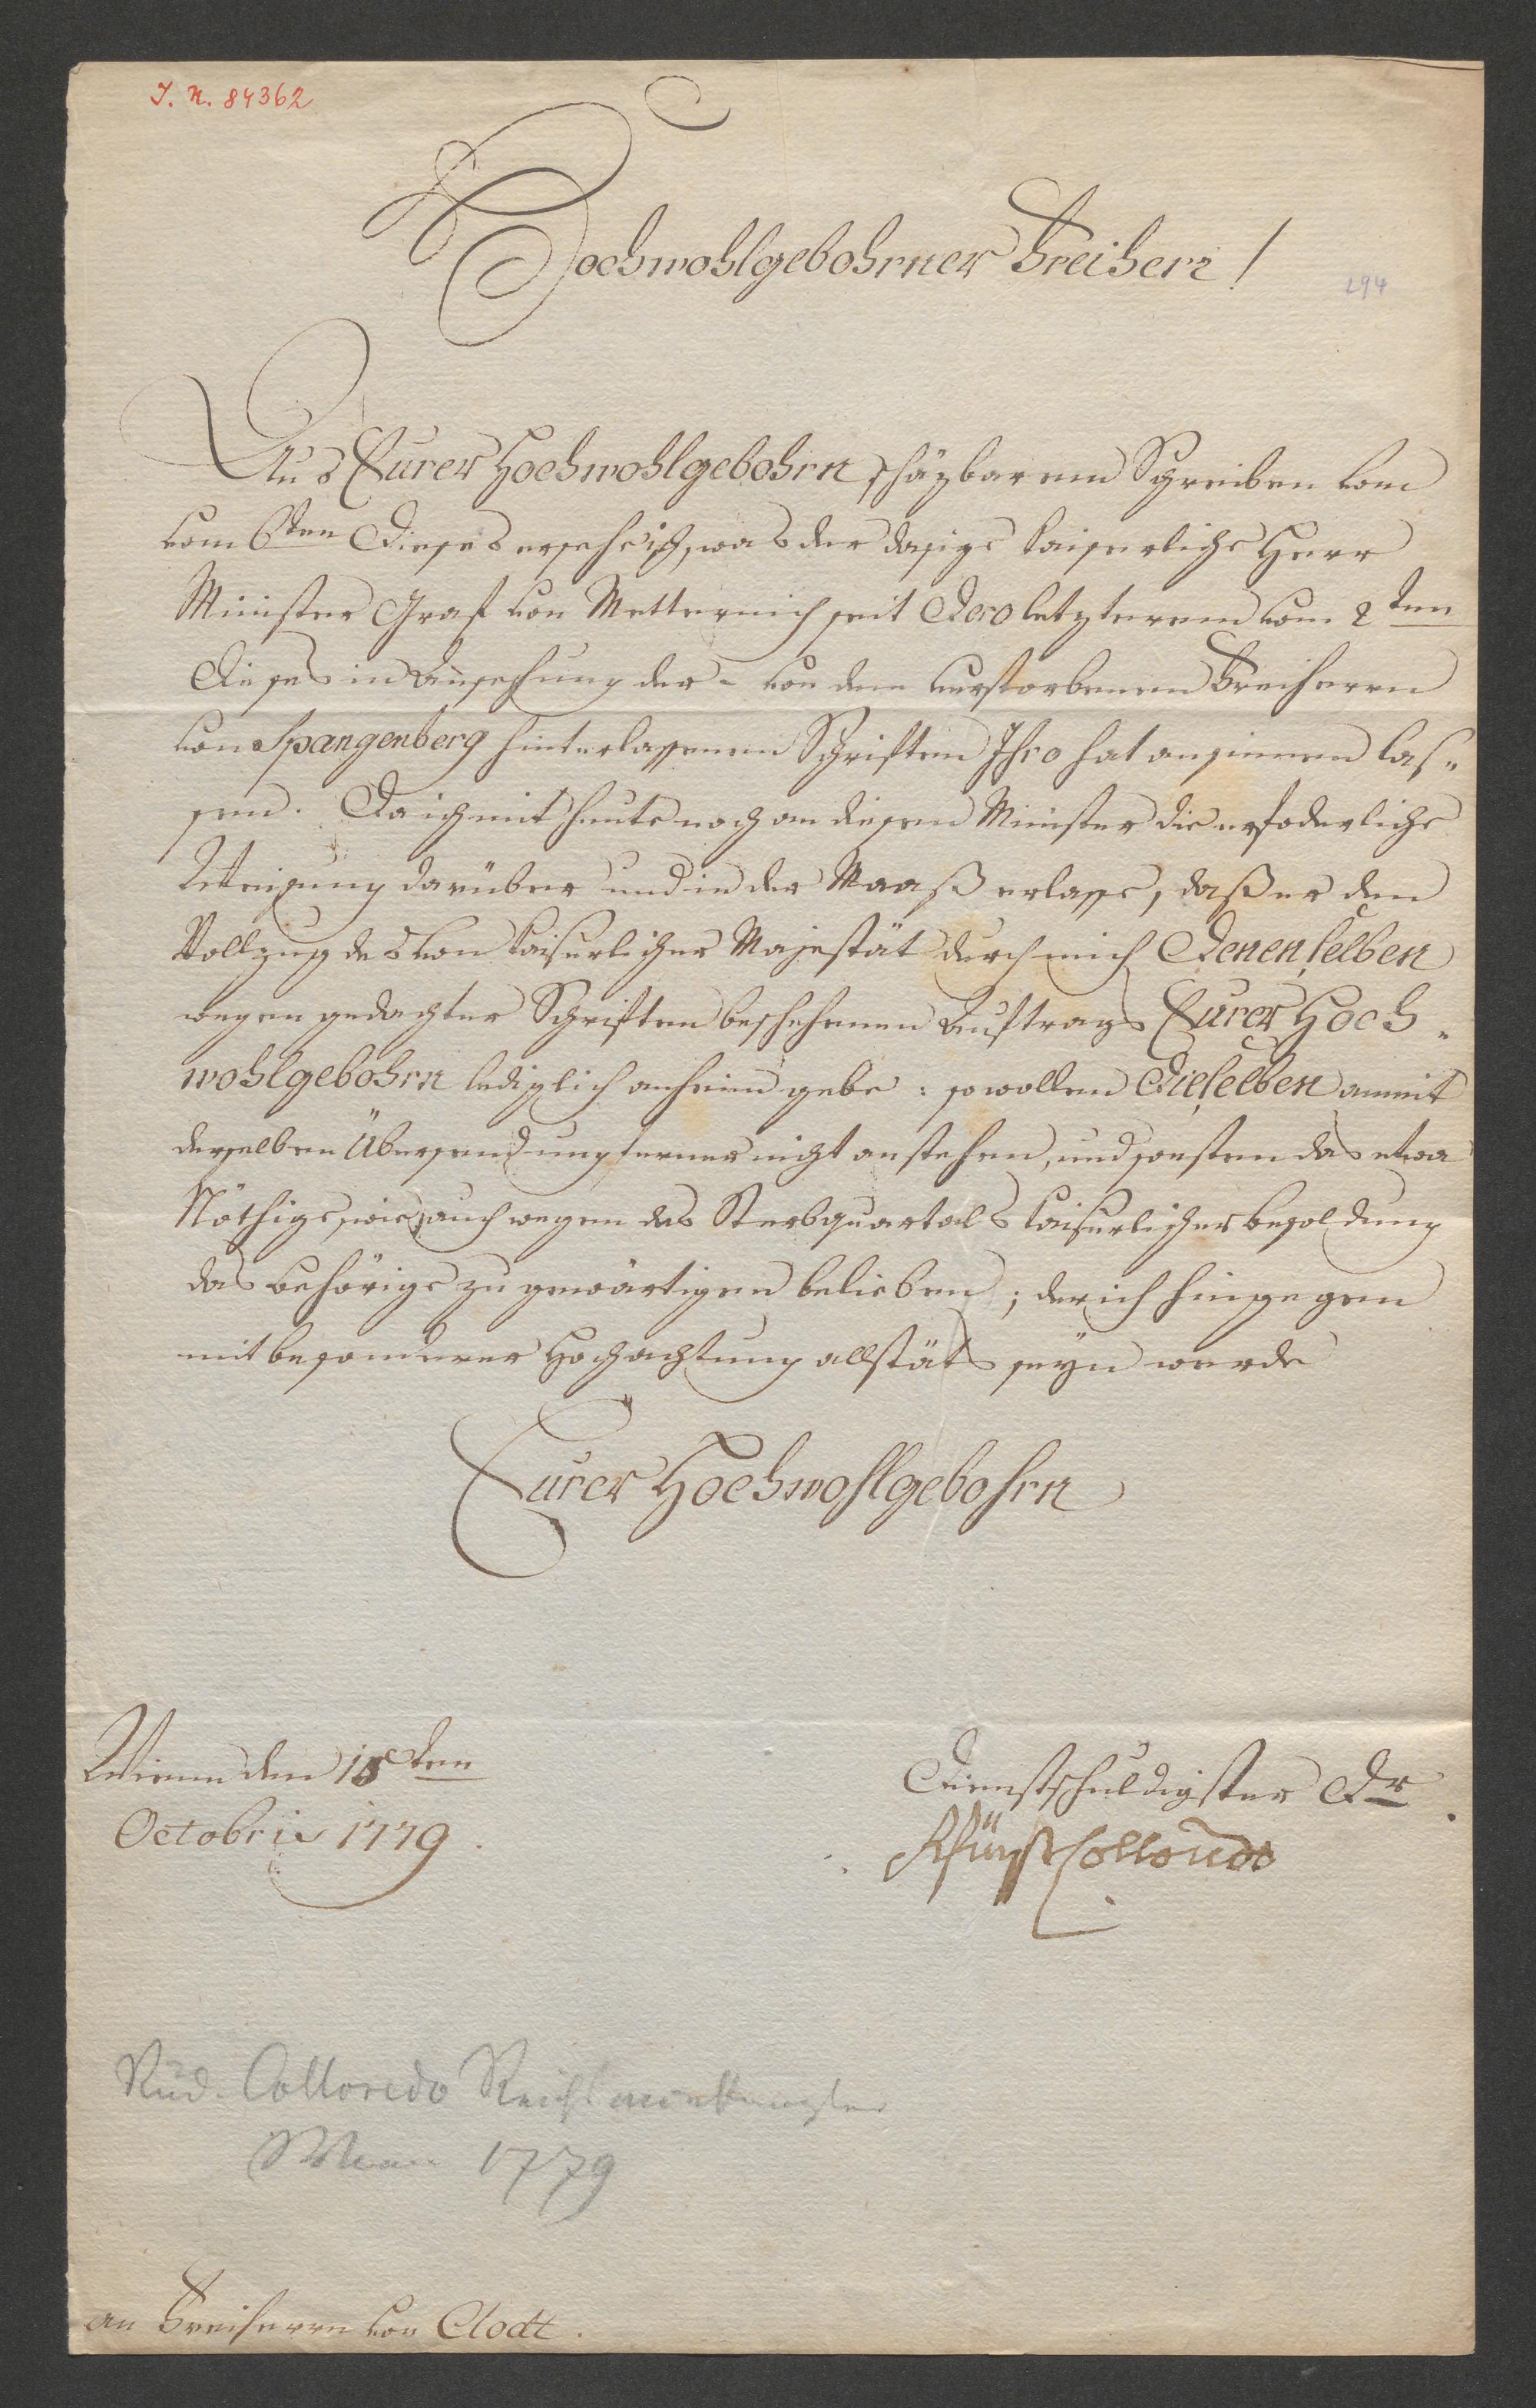 I. N. 84362
Hochwohlgebohrner Freiherr!
294
Aus Eurer Hochwohlgebohrn schäzbarem Schreiben vom
vom 6ten dieses ersehe ich, was der dasige kaiserliche Herr
Minister Graf von Metternich seit Dero letzterem vom 2ten
dieses in Ansehung der - von dem verstorbenen Freiherrn
von Spangenberg hinterlassenen Schriften Ihro hat ansinnen las„
sen. Da ich mit heute noch an diesen Minister die erfoderliche
Weisung darüber und in der Maaß erlasse, daß er den
Vollzug des von kaiserlicher Majestät durch mich Denenselben
wegen gedachter Schriften beschehenen Auftrags Eurer Hoch„
wohlgebohrn lediglich anheim gebe: so wollen Dieselben anmit
derselben Übersendung ferner nicht anstehen, und sonsten das etwa
Nöthige, wie auch wegen des Sterbquartals kaiserlicher besoldung
das behörige zu gewärtigen belieben; der ich hingegen
mit besonderer Hochachtung allstäts seyn werde
Eurer Hochwohlgebohrn
Wienn den 18ten
Octobris 1779.
Dienstschuldigster Dr
RFürst Colloredo
Rud. Colloredo Reichsvicekanzler
Wien 1779
an Freiherrn von Clodt.